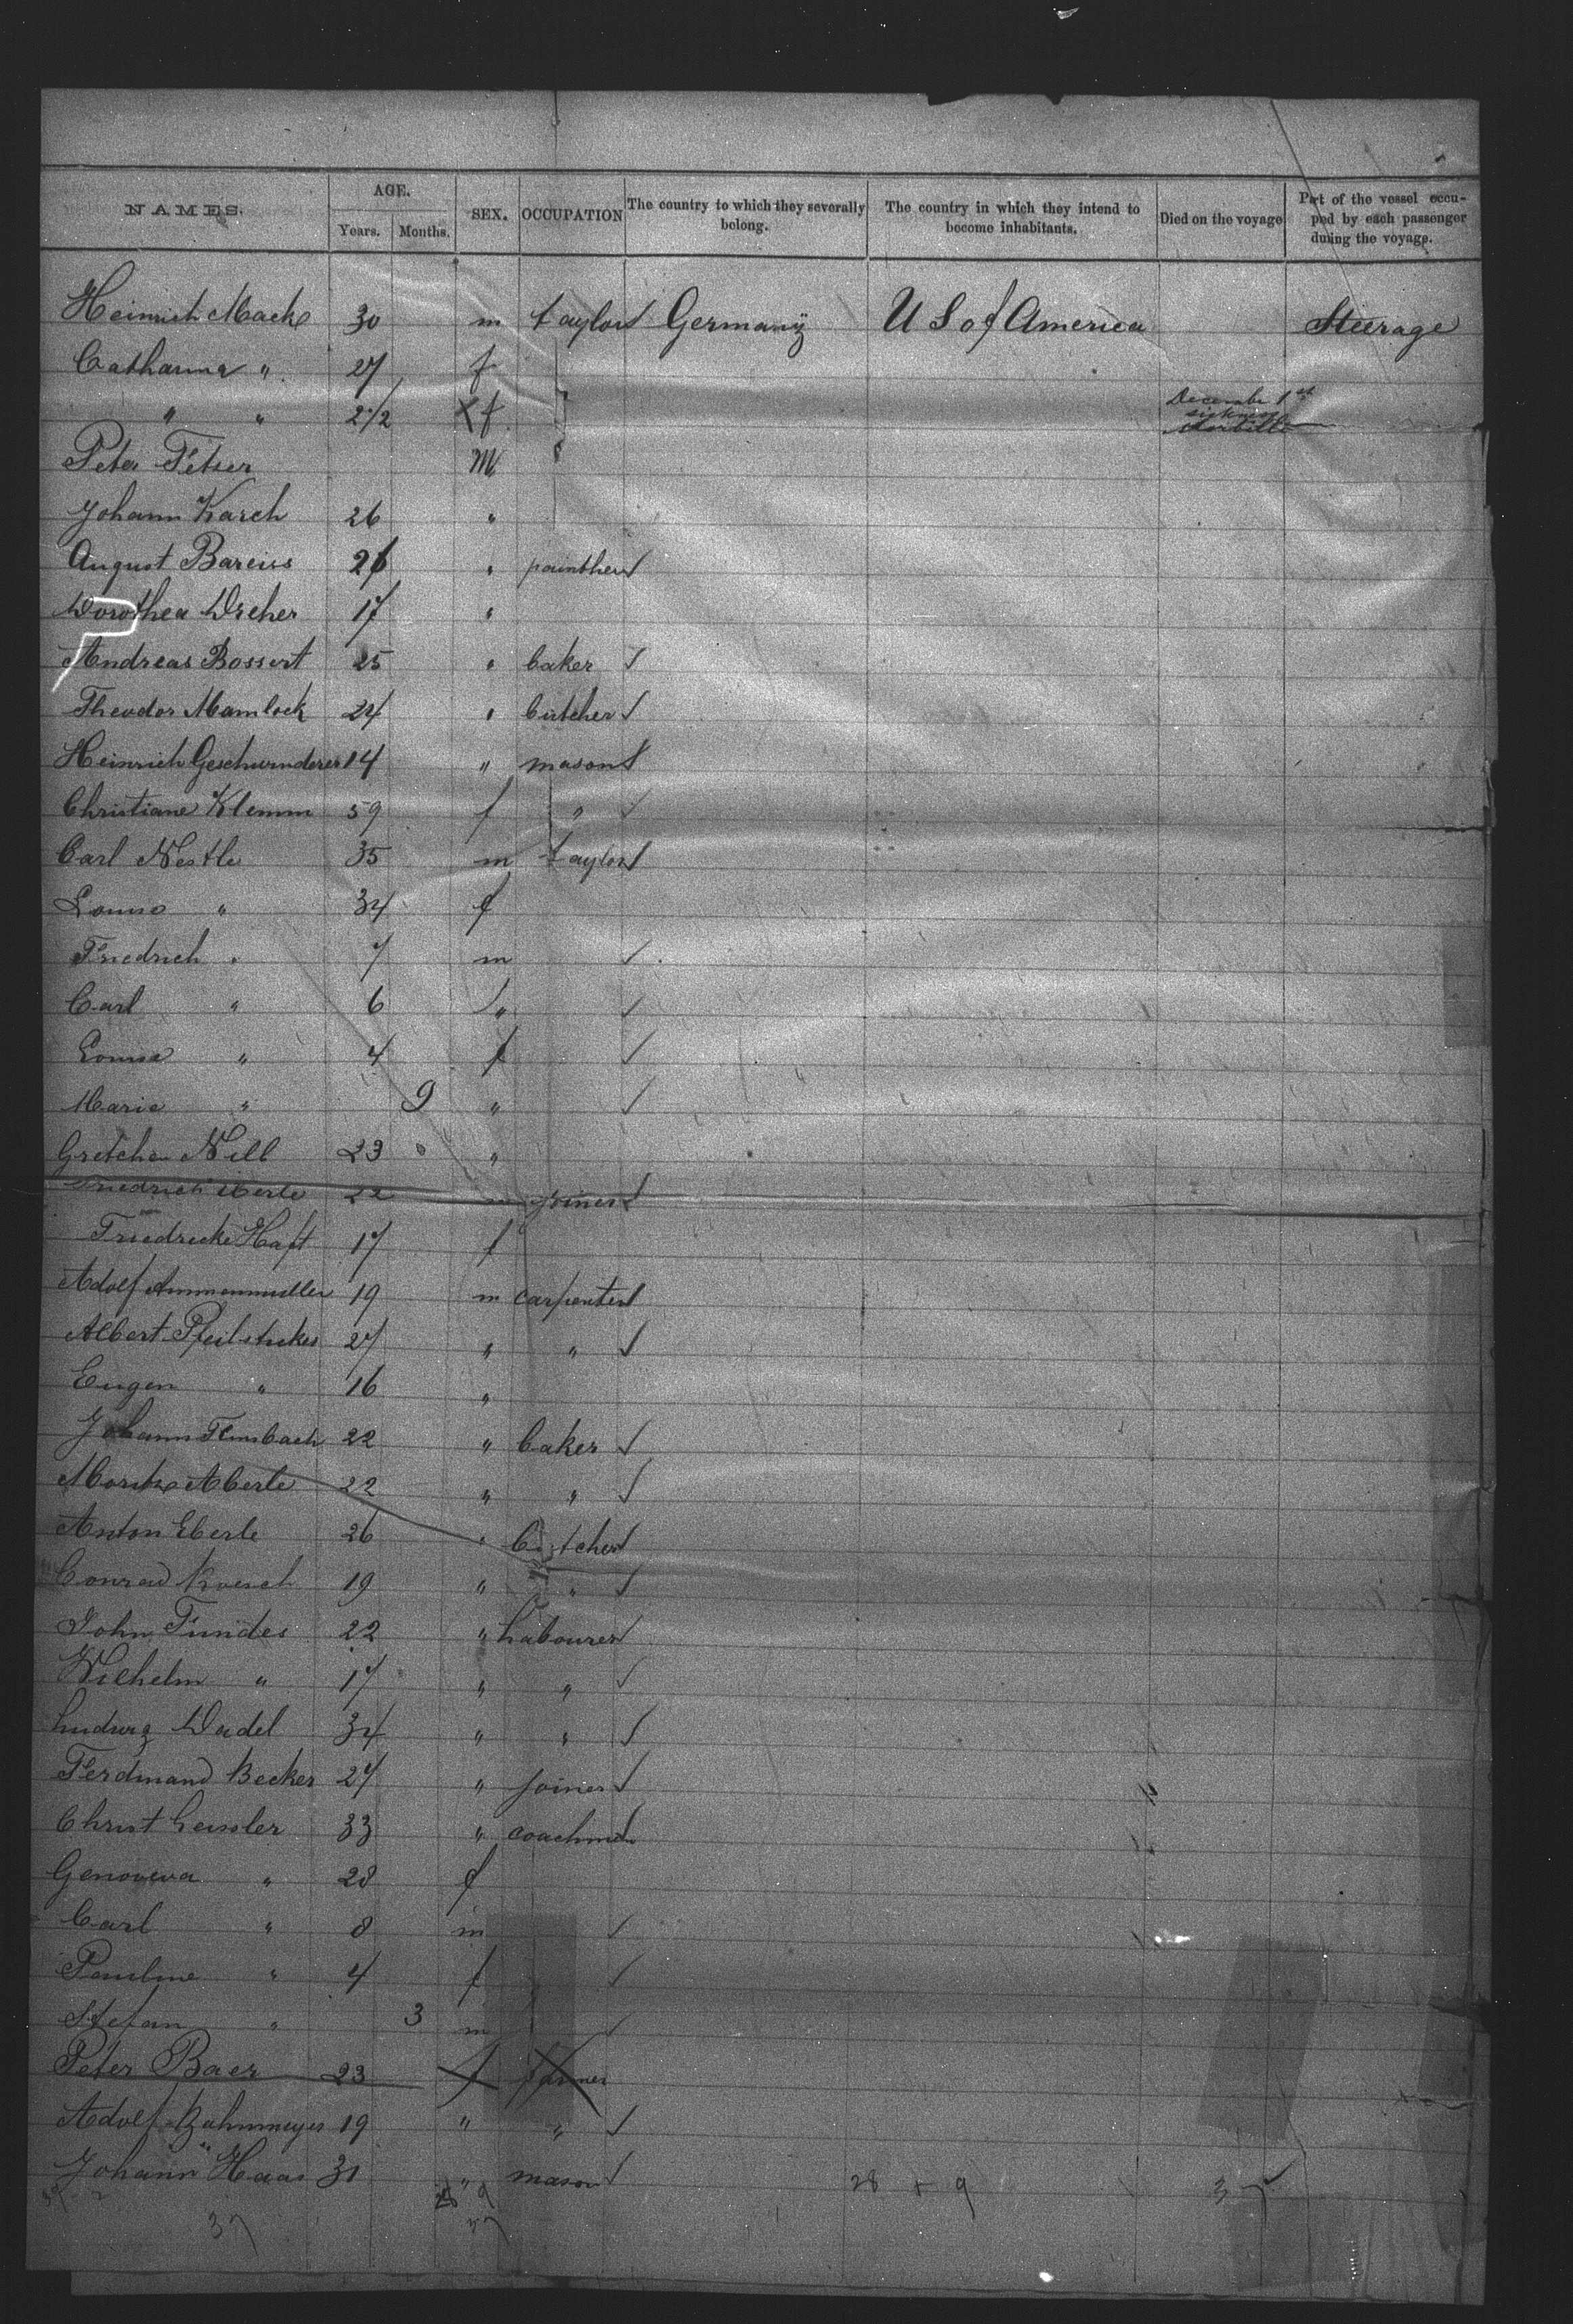 NAMES. AGE. SEX. OCCUPATION The country to which they severally belong. The country in which they intend to become inhabitants. Died on the voyage Part of the vessel occupied by each passenger during the voyage.
Years. Months.
Heinrich Mack 30 m taylor Germany U S of America Steerage
Catharina " 27 f
" " 2 1/2 X f December 1st sickness
Peter Fetzer M
Johann Karch 26 "
August Bareiss 26 " painther
Dorothea Dreher 17 "
Andreas Bossert 25 " baker
Theodor Mamlock 24 " butcher
Heinrich Geschwinderer 14 " mason
Christiane Klemm 59 f "
Carl Nestle 35 m taylor
Louise " 34 f
Friedrich " 7 m
Carl " 6 "
Louise " 4 f
Marie " 9 "
Gretchen Nill 23 "
Friedrich Eberle 22 m joiner
Friedricke Haft 17 f
Adolf Ammenmuller 19 m carpenter
Albert Pfeilsticker 27 " "
Eugen " 16 "
Johann 22 " baker
Moritz Aberle 22 " "
Anton Eberle 26 " butcher
Conrad Roesch 19 " "
John Fundes 22 " Labourer
Wilhelm " 17 " "
Ludwig Dadel 34 " "
Ferdinand Becker 27 " joiner
Christ Leissler 33 " coachman
Genoveva " 28 f
Carl " 8 m
Pauline " 4 f
Stefan " 3 m
Peter Baer 23 f farmer
Adolf Bahnmeyer 19 " "
Johann Haas 31 " mason 28 + 9 37
37